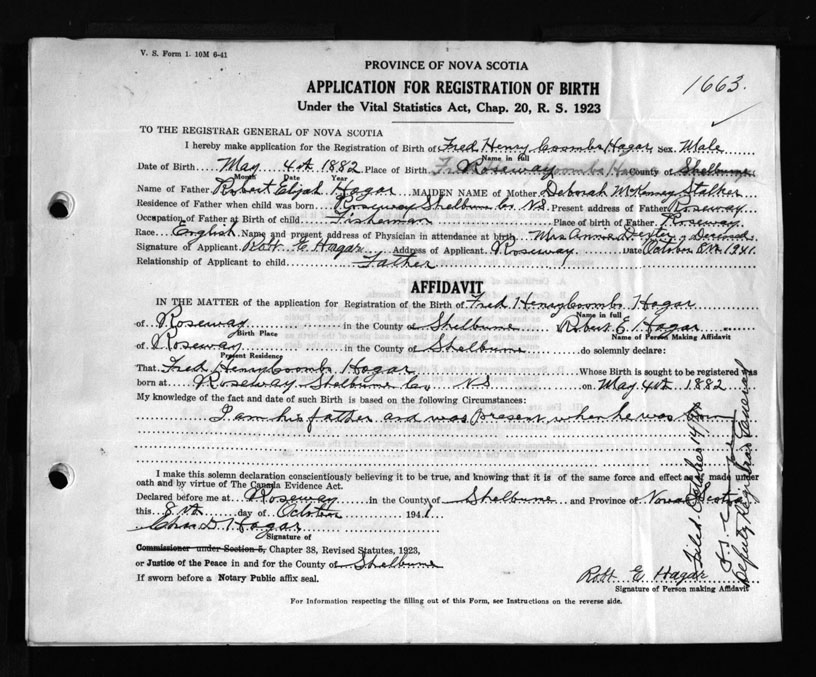 V. S. Form 1. 10M 6-41
PROVINCE OF NOVA SCOTIA
APPLICATION FOR REGISTRATION OF BIRTH
1663.
Under the Vital Statistics Act, Chap. 20, R. S. 1923
TO THE REGISTRAR GENERAL OF NOVA SCOTIA
I hereby make application for the Registration of Birth of Fred Henry Coombs Hagar Sex Male
Name in full
Date of Birth May 4th 1882 Place of Birth Roseway County of Shelburne
Month Date Year
Name of Father Robert Elijah Hagar MAIDEN NAME of Mother Deborah McKinney Stalker
Residence of Father when child was born Roseway Shelburne Co. N.S. Present address of Father Roseway
Occupation of Father at Birth of child Fisherman Place of birth of Father Roseway
Race English Name and present address of Physician in attendance at birth Mrs Anna Dexter Deceased
Signature of Applicant Robt. E. Hagar Address of Applicant Roseway Date October 8th 1941.
Relationship of Applicant to child Father
AFFIDAVIT
IN THE MATTER of the application for Registration of the Birth of Fred Henry Coombs Hagar
Name in full
of Roseway in the County of Shelburne Robert E. Hagar
Birth Place Name of Person Making Affidavit
of Roseway in the County of Shelburne do solemnly declare:
Present Residence
That Fred Henry Coombs Hagar Whose Birth is sought to be registered was
born at Roseway Shelburne Co. N.S. on May 4th 1882
My knowledge of the fact and date of such Birth is based on the following Circumstances:
I am his father and was present when he was born
I make this solemn declaration conscientiously believing it to be true, and knowing that it is of the same force and effect as if made under
oath and by virtue of The Canada Evidence Act.
Declared before me at Roseway in the County of Shelburne and Province of Nova Scotia
this 8th day of October 1941
Chas D. Hagar
Signature of
Commissioner under Section 5, Chapter 38, Revised Statutes, 1923,
or Justice of the Peace in and for the County of Shelburne
If sworn before a Notary Public affix seal.
Robt. E. Hagar
Signature of Person making Affidavit
For Information respecting the filling out of this Form, see Instructions on the reverse side.
Filed October 14/41
Deputy Registrar General